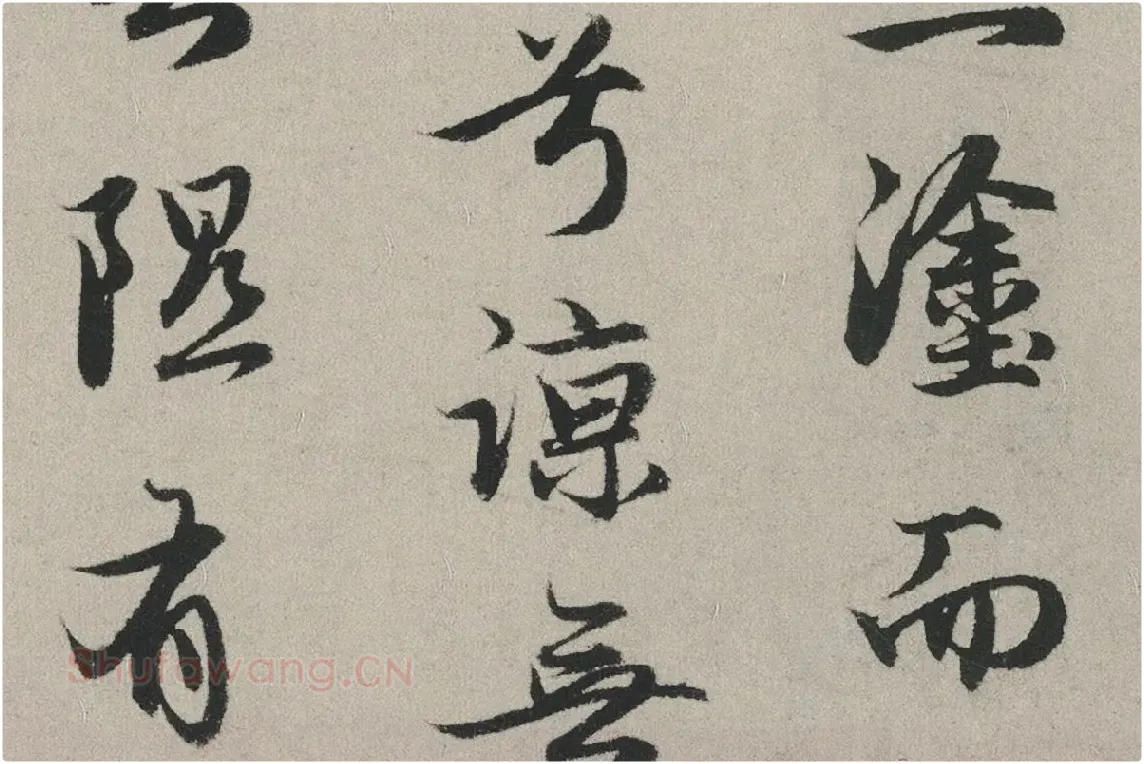 一塗而
兮諒無
有
Shufawang.CN